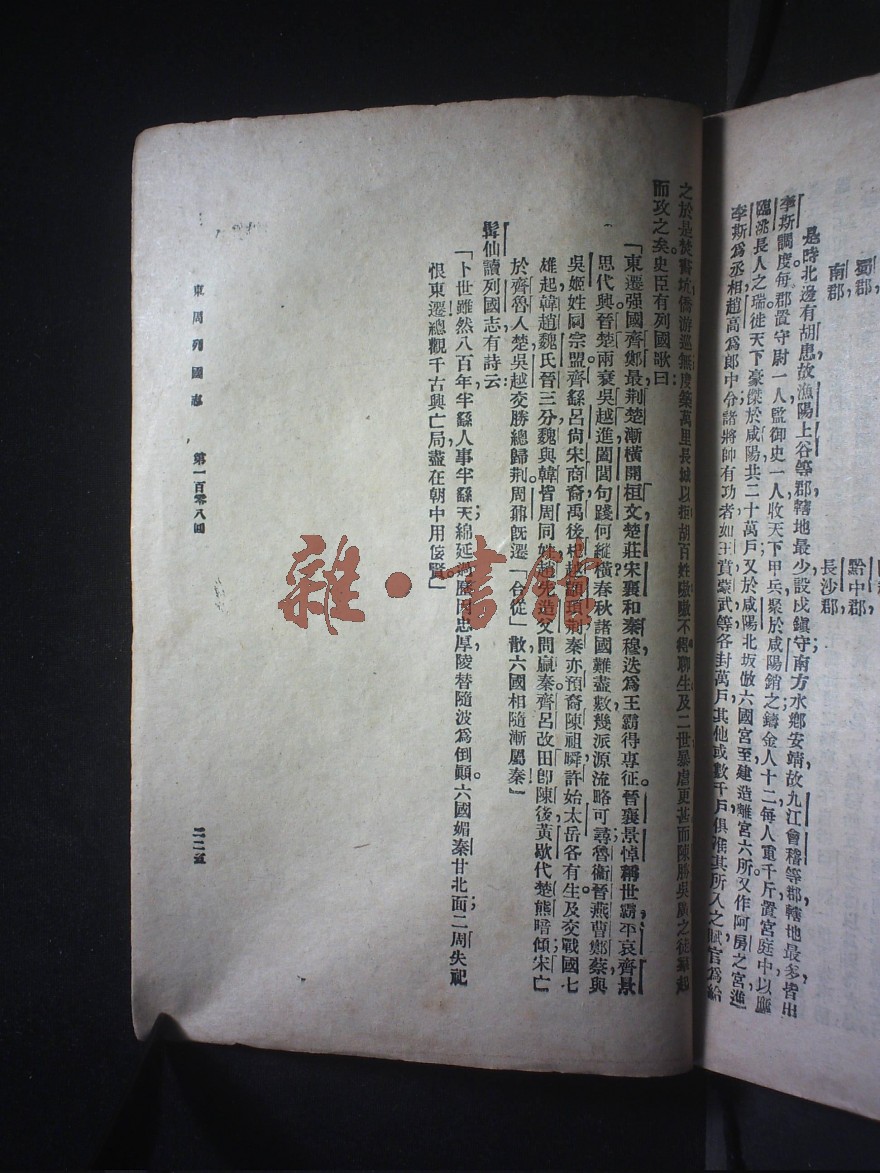 蜀郡，
南郡，
黔中郡，
長沙郡，
是時北邊有胡患，故漁陽上谷等郡，轄地最少，設戍鎮守；南方水鄉安靖，故九江會稽等郡，轄地最多，皆出
李斯調度。每郡置守尉一人，監御史一人。收天下甲兵，聚於咸陽銷之，鑄金人十二，每人重千斤，置宮庭中，以應
臨洮長人之瑞。徙天下豪傑於咸陽，共二十萬戶。又於咸陽北坂，倣六國宮室，建造離宮六所。又作阿房之宮。進
李斯爲丞相，趙高爲郎中令。諸將帥有功者，如王賁蒙武等，各封萬戶，其他或數千戶，俱准其所入之賦，官爲給
之。於是焚書坑儒，游巡無度，築萬里長城以拒胡，百姓嗷嗷，不得聊生。及二世暴虐更甚，而陳勝吳廣之徒，羣起
而攻之矣。史臣有列國歌曰：
「東遷强國齊鄭最，荆楚漸橫開桓文，楚莊宋襄和秦穆，迭爲王霸得專征。晉襄景悼稱世霸，平哀齊景
思代興，晉楚兩衰吳越進，闔閭句踐何縱橫？春秋諸國難盡數，幾派源流略可尋。魯衛晉燕曹鄭蔡與
吳姬姓同宗盟。齊繇呂尚宋商裔，禹後杞越顓頊荆。秦亦預裔陳祖舜，許始太岳各有生。及交戰國七
雄起，韓趙魏氏晉三分。魏與韓皆周同姓，趙先造父同嬴秦。齊呂改田卽陳後，黃歇代楚熊暗傾，宋亡
於齊魯入楚，吳越交勝總歸荆。周鼎旣遷「合從」散，六國相隨漸屬秦。」
髯仙讀列國志，有詩云：
「卜世雖然八百年，半繇人事半繇天。綿延過歷因忠厚，陵替隨波爲倒顚。六國媚秦甘北面，二周失祀
恨東遷。總觀千古興亡局，盡在朝中用佞賢。」
東周列國志　第一百零八回
雜·書館